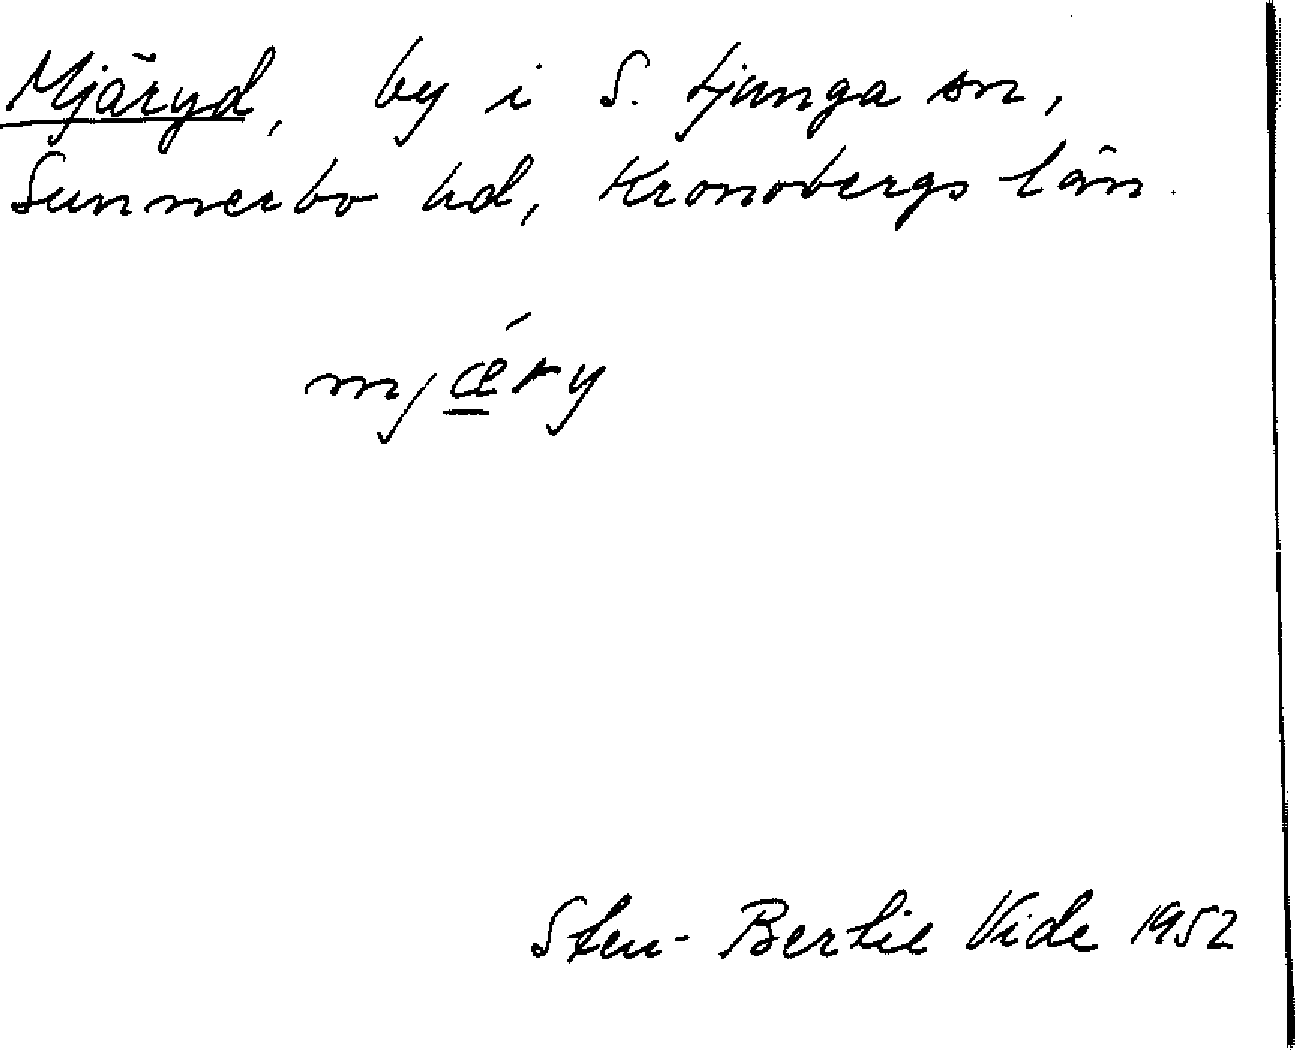 Mjäryd, by i S. Ljunga sn,
Sunnerbo hd, Kronobergs län.
mjǽ̲ry
Sten-Bertil Vide 1952